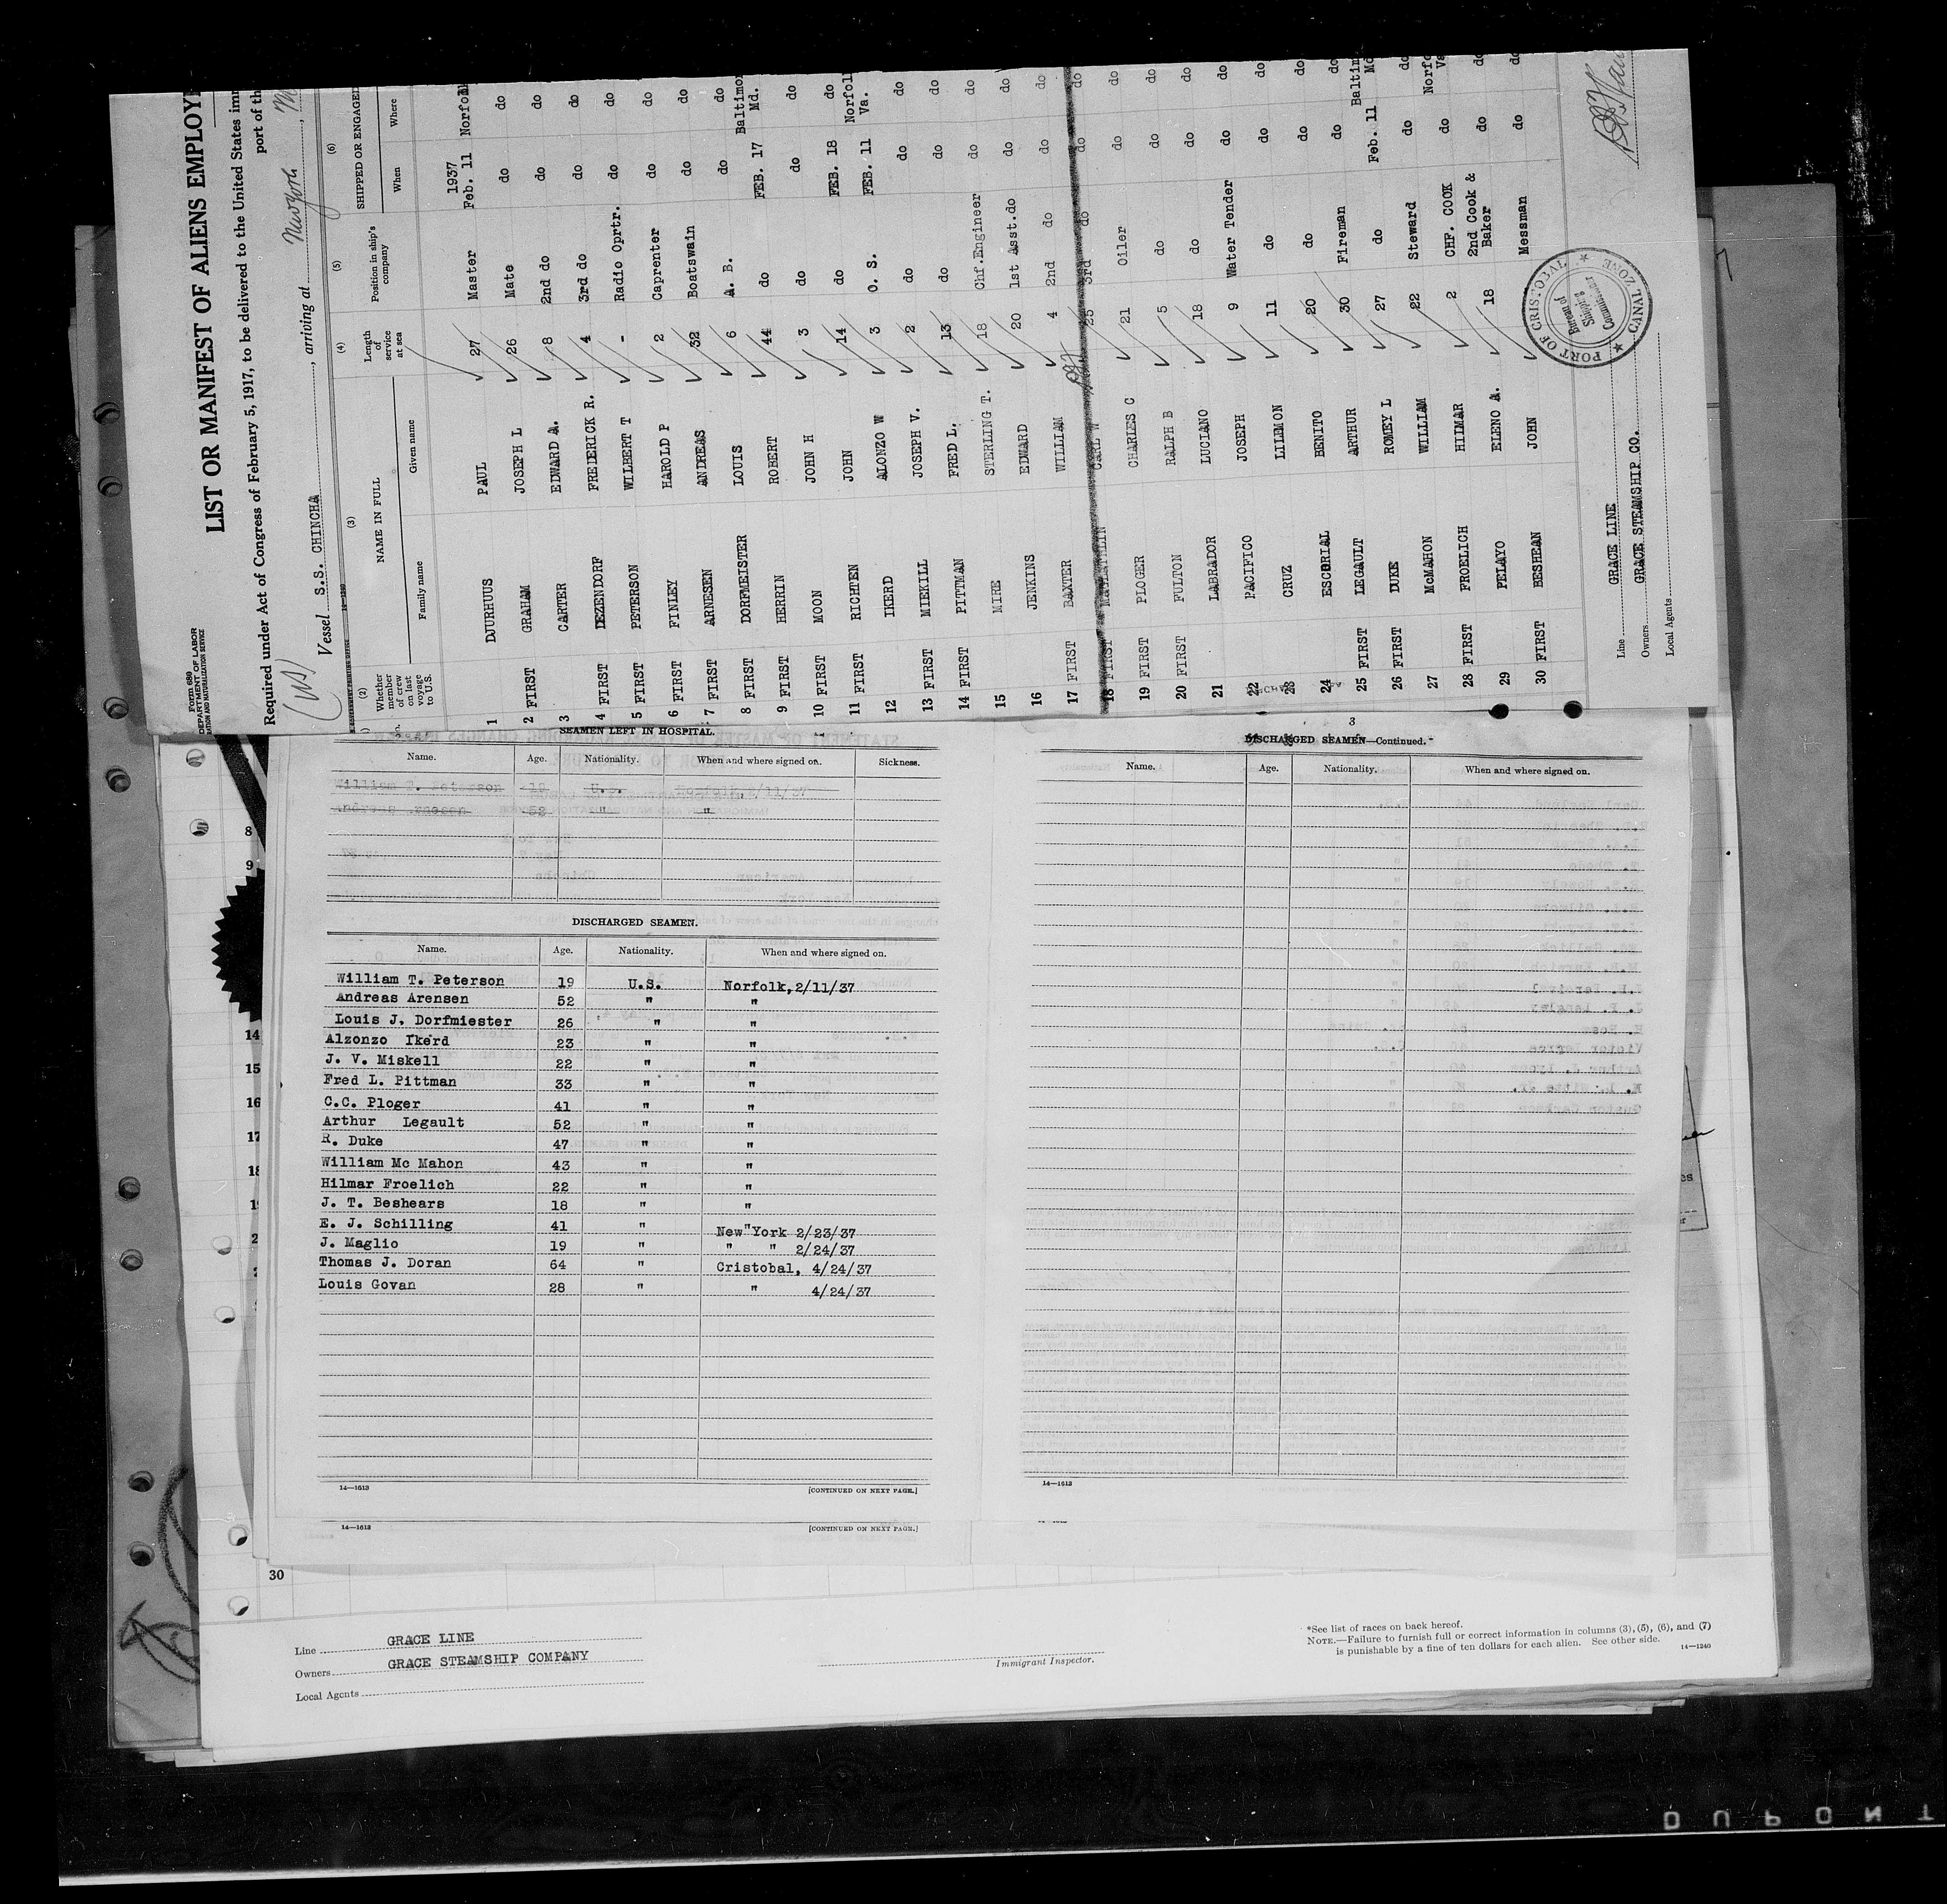 Form 689
DEPARTMENT OF LABOR
LIST OR MANIFEST OF ALIENS EMPLOY
Required under Act of Congress of February 5, 1917, to be delivered to the United States imm
port of th
(US)
Vessel S.S. CHINCHA, arriving at Newyork
(2) (3) (4) (5) (6)
Whether member of crew on last voyage to U.S. NAME IN FULL Length of service at sea Position in ship's company SHIPPED OR ENGAGED
Family name Given name When Where
1937
1 DJURHUUS PAUL 27 Master Feb. 11 Norfol
2 FIRST GRAHAM JOSEPH L 26 Mate do do
3 CARTER EDWARD A. 8 2nd do do do
4 FIRST DEZENDORF FREIERICK R. 4 3rd do do do
5 FIRST PETERSON WILBERT T - Radio Oprtr. do do
6 FIRST FINLEY HAROLD P 2 Caprenter do do
7 FIRST ARNESEN ANDREAS 32 Boatswain do do
8 FIRST DORFMEISTER LOUIS 6 A. B. do do
9 FIRST HERRIN ROBERT 44 do FEB. 17 Baltimo Md.
10 FIRST MOON JOHN H 3 do do do
11 FIRST RICHTEN JOHN 14 do FEB. 18 do
12 IKERD ALONZO W 3 O. S. FEB. 11 Norfol Va.
13 FIRST MIEKILL JOSEPH V. 2 do do do
14 FIRST PITTMAN FRED L. 13 do do do
15 MIRE STERLING T. 18 Chf.Engineer do do
16 JENKINS EDWARD 20 1st Asst.do do do
17 FIRST BAXTER WILLIAM 4 2nd do do do
18 FIRST CARL W 25 3rd do do do
19 FIRST PLOGER CHARLES C 21 Oiler do do
20 FIRST FULTON RALPH B 5 do do do
21 LABRADOR LUCIANO 18 do do do
22 PACIFICO JOSEPH 9 Water Tender do do
23 CRUZ LILEMON 11 do do do
24 ESCORIAL BENITO 20 do do do
25 FIRST LEGAULT ARTHUR 30 Fireman do do
26 FIRST DUKE ROMEY L 27 do Feb. 11 Baltim Md
27 McMAHON WILLIAM 22 Steward do do
28 FIRST FROELICH HILMAR 2 CHF. COOK do Norfo Va
29 PELAYO ELENO A. 18 2nd Cook & Baker do do
30 FIRST BESHEAN JOHN Messman do do
Line GRACE LINE
Owners GRACE STEAMSHIP CO.
Local Agents
PORT OF CRISTOBAL
CANAL ZONE
Bureau of Shipping Commissioner
SEAMEN LEFT IN HOSPITAL.
Name. Age. Nationality. When and where signed on. Sickness.
William T. Peterson 19 U.S. Norfolk, 2/11/37
Andreas Arensen 52 " "
DISCHARGED SEAMEN.
Name. Age. Nationality. When and where signed on.
William T. Peterson 19 U.S. Norfolk,2/11/37
Andreas Arensen 52 " "
Louis J. Dorfmiester 26 " "
Alzonzo Ikerd 23 " "
J. V. Miskell 22 " "
Fred L. Pittman 33 " "
C.C. Ploger 41 " "
Arthur Legault 52 " "
R. Duke 47 " "
William Mc Mahon 43 " "
Hilmar Froelich 22 " "
J. T. Beshears 18 " "
E. J. Schilling 41 " New York 2/23/37
J. Maglio 19 " " " 2/24/37
Thomas J. Doran 64 " Cristobal, 4/24/37
Louis Govan 28 " " 4/24/37
14—1613 [CONTINUED ON NEXT PAGE.]
14—1613 [CONTINUED ON NEXT PAGE.]
3
DISCHARGED SEAMEN—Continued.
Name. Age. Nationality. When and where signed on.
14—1613
8
9
14
15
16
17
18
30
Line GRACE LINE
Owners GRACE STEAMSHIP COMPANY
Local Agents
Immigrant Inspector.
*See list of races on back hereof.
NOTE.—Failure to furnish full or correct information in columns (3), (5), (6), and (7)
is punishable by a fine of ten dollars for each alien. See other side. 14—1240
DUPONT